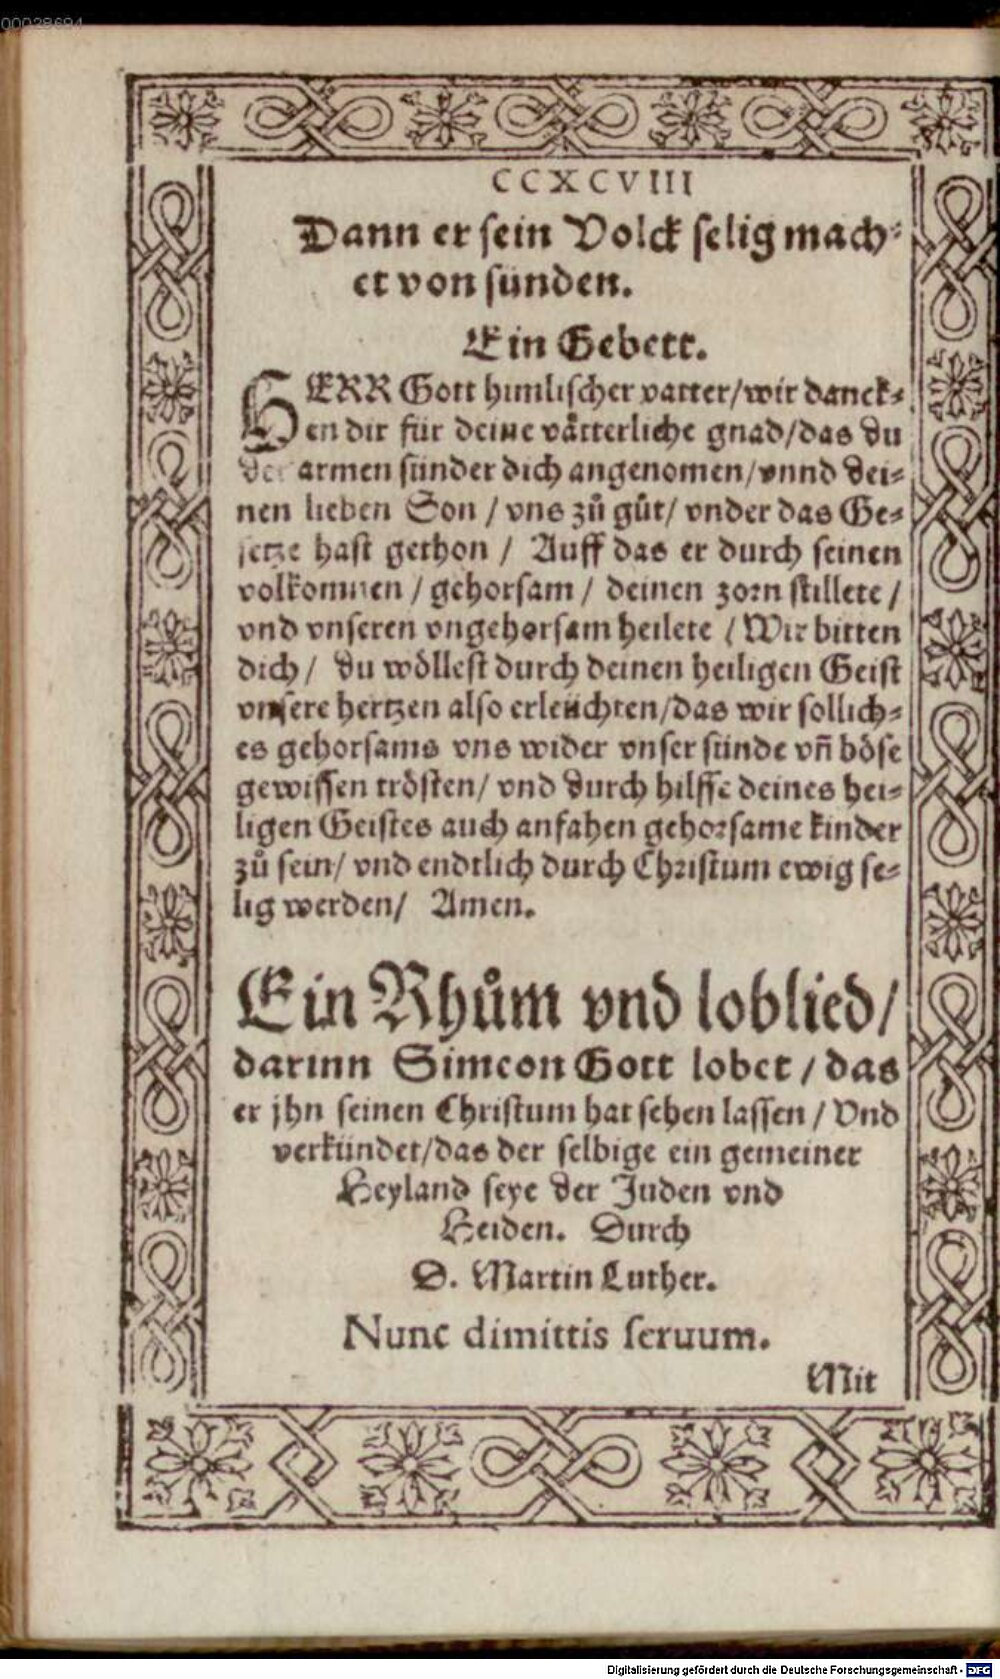 00028694
CCXCVIII
Dann er sein Volck selig mach⸗
et von sünden.
Ein Gebett.
HERR Gott himlischer vatter/wir danck⸗
en dir für deine vätterliche gnad/das du
der armen sünder dich angenomen/vnnd dei⸗
nen lieben Son / vns zů gůt/ vnder das Ge⸗
setze hast gethon / Auff das er durch seinen
volkomnen / gehorsam / deinen zorn stillete /
vnd vnseren vngehorsam heilete / Wir bitten
dich / du wöllest durch deinen heiligen Geist
vnsere hertzen also erleüchten/das wir sollich⸗
es gehorsams vns wider vnser sünde vn̄ böse
gewissen trösten/ vnd durch hilffe deines hei⸗
ligen Geistes auch anfahen gehorsame kinder
zů sein/ vnd endtlich durch Christum ewig se⸗
lig werden/ Amen.
Ein Rhům vnd loblied/
darinn Simeon Gott lobet / das
er jhn seinen Christum hat sehen lassen / Vnd
verkündet/das der selbige ein gemeiner
Heyland seye der Juden vnd
Heiden. Durch
D. Martin Luther.
Nunc dimittis seruum.
Mit
Digitalisierung gefördert durch die Deutsche Forschungsgemeinschaft - DFG